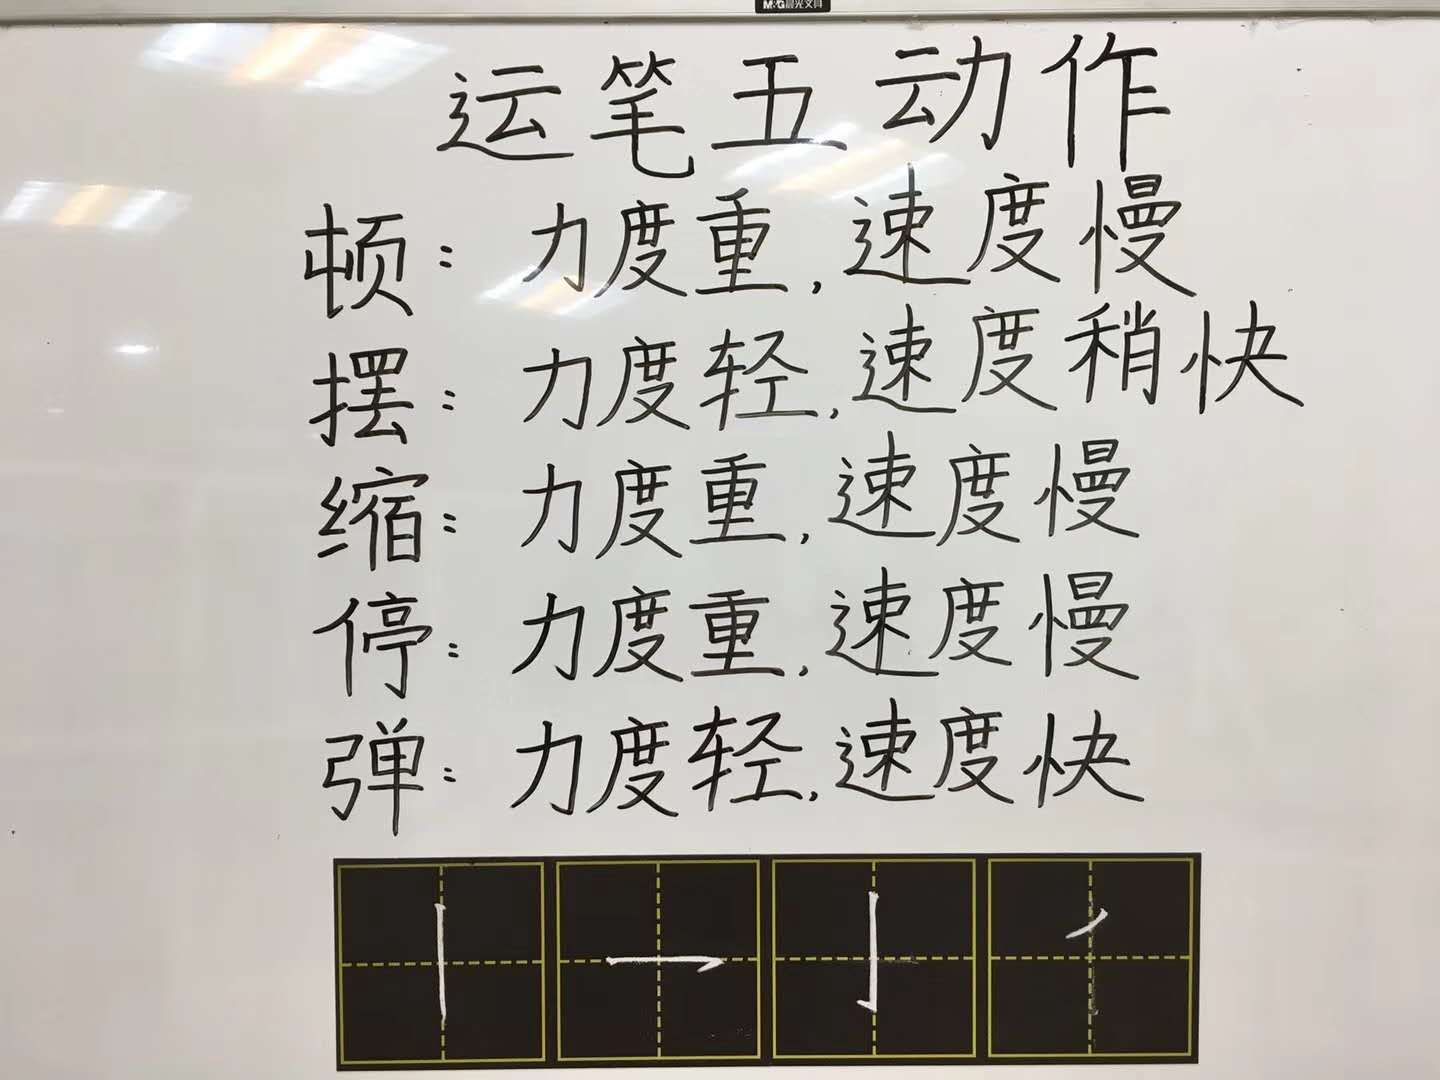 M&G晨光文具
运笔五动作
顿：力度重，速度慢
摆：力度轻，速度稍快
缩：力度重，速度慢
停：力度重，速度慢
弹：力度轻，速度快